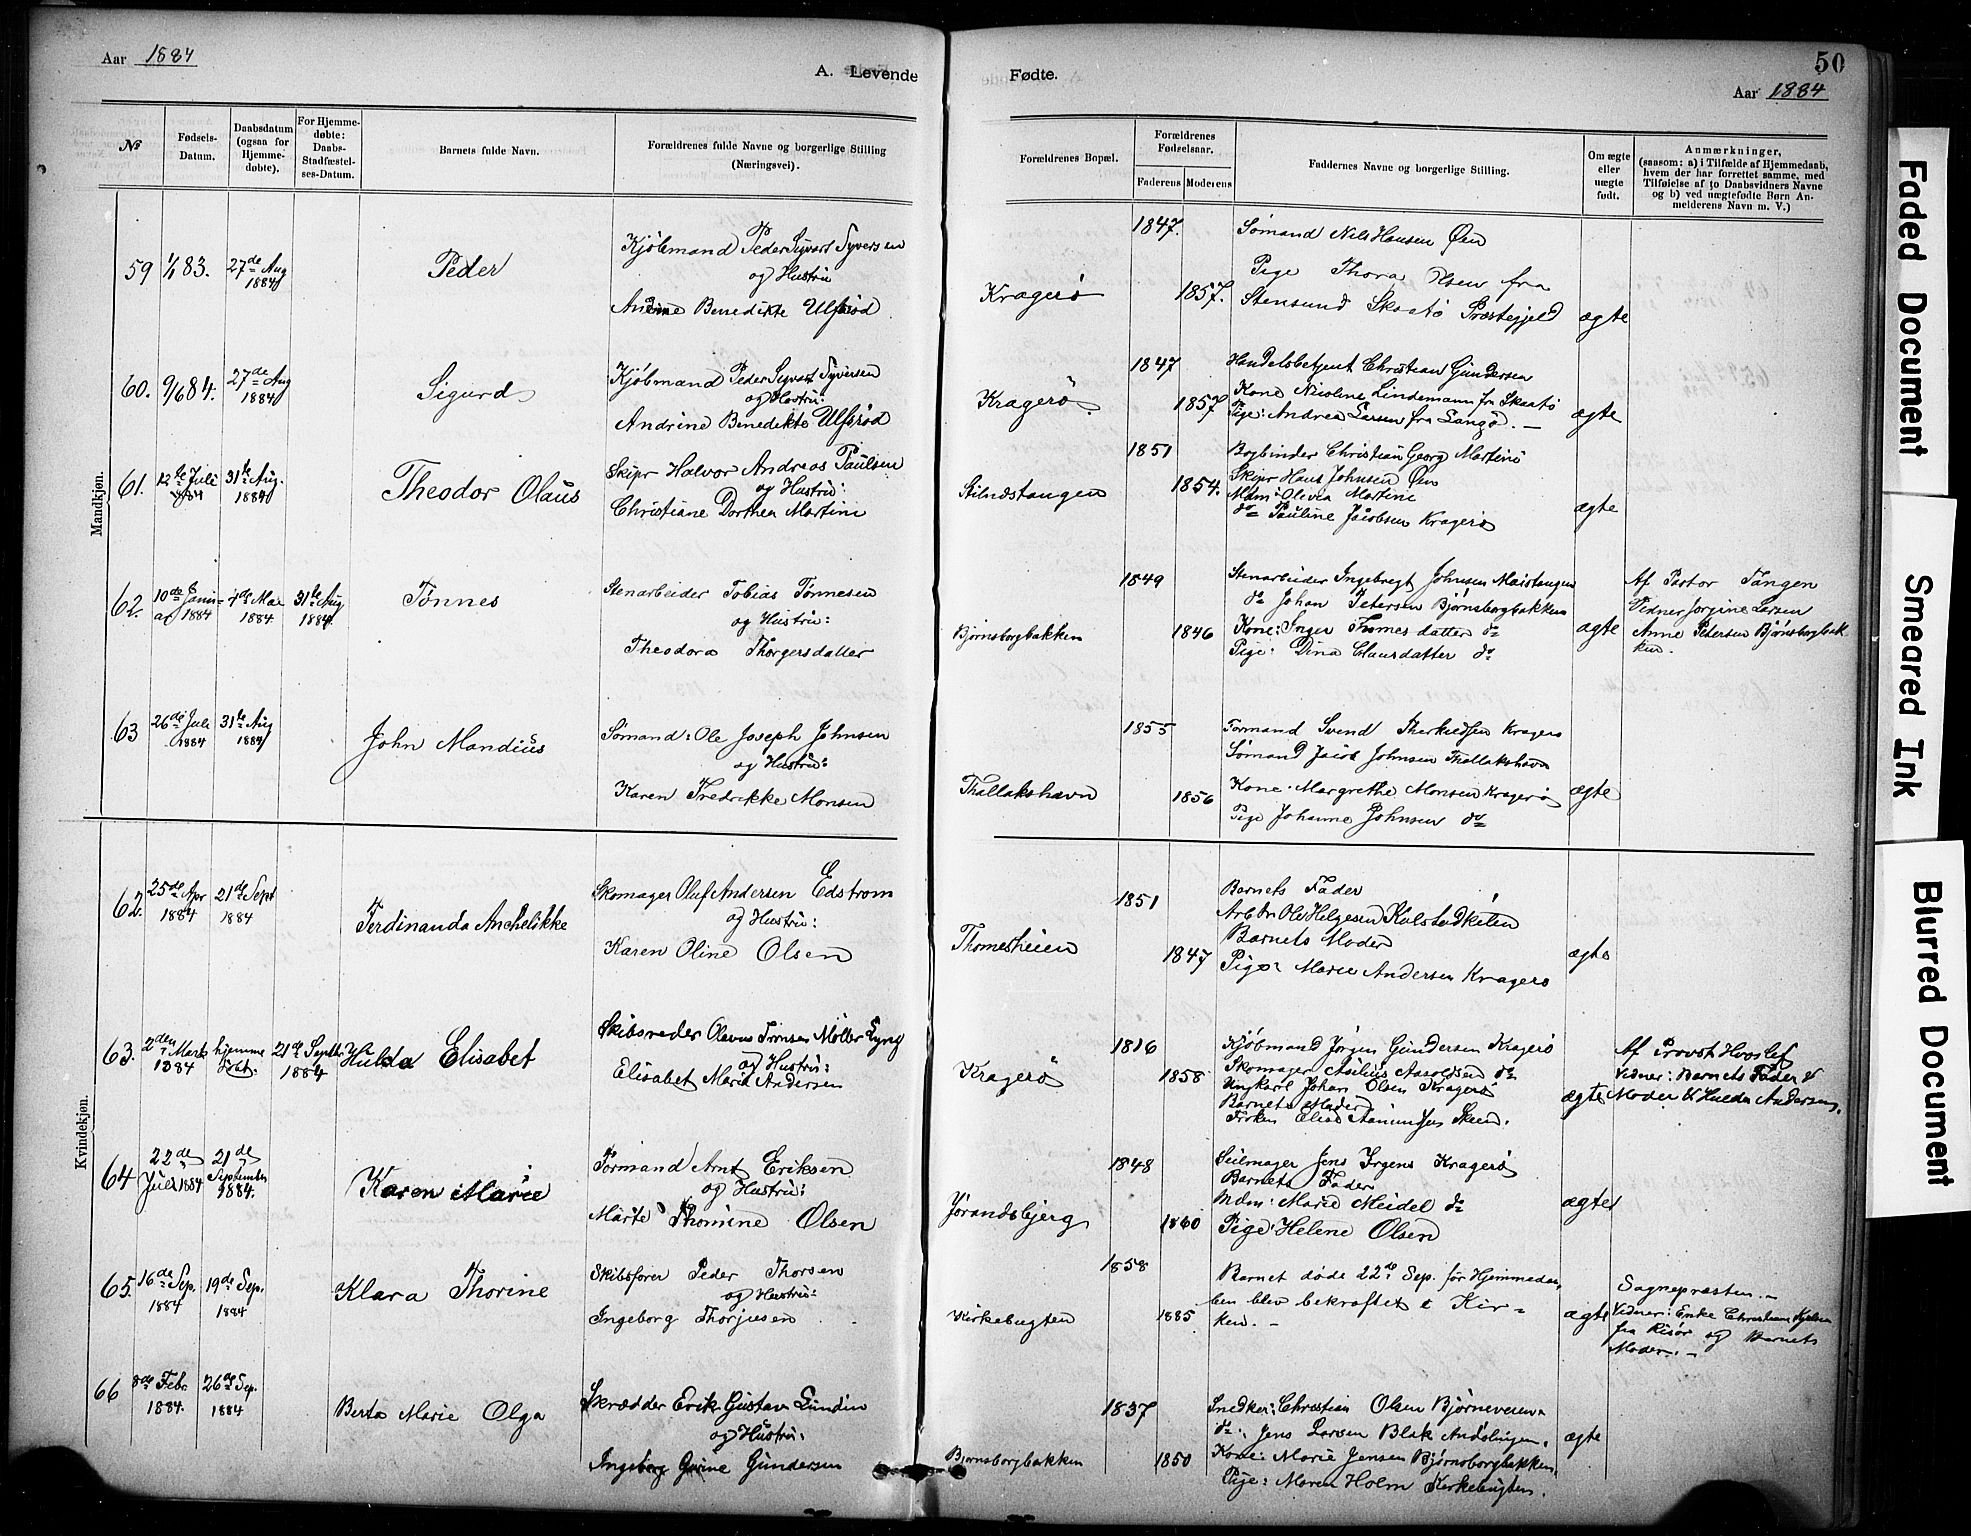 Aar 1884
A. Levende
Fødte.
50
Aar 1884
№
Fødsels-Datum.
Daabsdatum (ogsaa for Hjemmedøbte).
For Hjemmedøbte: Daabs-Stadfæstelses-Datum.
Barnets fulde Navn.
Forældrenes fulde Navne og borgerlige Stilling (Næringsvei).
Forældrenes Bopæl.
Forældrenes Fødselsaar.
Faderens
Moderens
Faddernes Navne og borgerlige Stilling.
Om ægte eller uægte født.
Anmærkninger,
(saasom: a) i Tilfælde af Hjemmedaab, hvem der har forrettet samme, med Tilføielse af to Daabsvidners Navne og b) ved uægtefødte Børn Anmelderens Navn m. V.)
Mandkjøn.
59 1/1 83. 27de Aug 1884
Peder
Kjöbmand Peder Syvart Syversen
og Hustru
Andrine Benedikte Ulfsröd
Kragerö
1847.
1857.
Sömand Nils Hansen Öen
Pige Thora Olsen fra
Stensund Skaatö Præstegjeld
ægte
60. 9/6 84. 27de Aug 1884
Sigurd
Kjöbmand Peder Syvart Syversen
og Hustru:
Andrine Benedikte Ulfsröd
Kragerö
1847
1857
Handelsbetjent Christian Gundersen
Kone Nicoline Lindemann fr Skaatö
Pige: Andrea Larsen fra Langö. —
ægte
61. 12te Juli 1884 31te Aug. 1884
Theodor Olaus
Skipr Halvor Andreas Paulsen
og Hustru:
Christiane Dorthea Martini
Stilnæstangen
1851
1854.
Bogbinder Christian Georg Martini
Skipr Hans Johnsen Öen
Mdm: Olivia Martini
do Pauline Jacobsen Kragerö
ægte
62. 10de Januar 1884 4de Mai 1884 31te Aug 1884
Tönnes
Stenarbeider Tobias Tönnesen
og Hustru:
Theodora Thorgersdatter
Björnsborgbakken
1849
1846
Stenarbeider Ingebregt Johnsen
do Johan Petersen Björnsborgbakken
Kone: Inger Thomesdatter do
Pige: Dina Clausdatter do
ægte
Af Pastor Tangen
Vidner Jorgine Larsen
Anne Petersen Björnsborgbak
ken.
63 26de Juli 1884 31te Aug 1884
John Mandius
Sömand: Ole Joseph Johnsen
og Hustru:
Karen Fredrikke Monsen
Thallakshavn
1855
1856
Formand Svend Therkeldsen Kragerö
Sömand Jacob Johnsen Thallakshavn
Kone: Margrethe Monsen Kragerö
Pige Johanne Johnsen do
ægte
Kvindekjøn.
62. 25de Apr 1884 21de Sept 1884
Ferdinanda Anchelikke
Skomager Oluf Andersen Edstrom
og Hustru:
Karen Oline Olsen
Thomesheien
1851
1847
Barnets Fader
Arb br Ole Helgesen Kalstadkilen
Barnets Moder
Pige: Marie Andersen Kragerö
ægte
63. 2den Marts 1884 hjemme döbt. 21de Septbr 1884
Hulda Elisabet
Skibsreder Olavus Möller Lyng
og Hustru:
Elisabet Maria Andersen
Kragerö
1816
1858
Kjöbmand Jörgen Gundersen Kragerö
Skomager Aaroldsen do
Ungkarl Johan Olsen Kragerö
Barnets Moder
Fröken Elise Skien.
ægte
Af Provst Hvoslef
Vidner: Barnets Fader &
Moder & Hulda Andersen.
64 22de Juli 1884 21de September 1884.
Karen Marie
Formand Arnt Eriksen
og Hustru:
Märte Thomine Olsen
Jörandsbjerg
1848
1860
Seilmager Jens Irgens Kragerö
Barnets Fader
Mdm: Marie Meidel do
Pige: Helene Olsen
ægte
65. 16de Sep. 1884 19de Sep. 1884
Klara Thorine
Skibsförer Peder Thorsen
og Hustru:
Ingeborg Thorjusen
Kirkebugten
1858
1885
Barnet döde 22de Sep. för Hjemmedaa
ben blev bekræftet i Kir-
ken. —
ægte
Sognepræsten. —
Vidner: Enke Christiane
fra Risör og Barnets
Moder. —
66 8de Febr. 1884. 26de Sep. 1884
Berta Marie Olga
Skrædder Erik Gustav Lundin
og Hustru:
Ingeborg Gurine Gundersen
Bjornsborgbakken
1837
1850
Snedker: Christian Olsen
do: Jens Larsen Blak
Kone: Marie Jensen Björnsborgbakken.
Pige: Maren Holm Kirkebugten.
ægte
Faded Document
Smeared Ink
Blurred Document